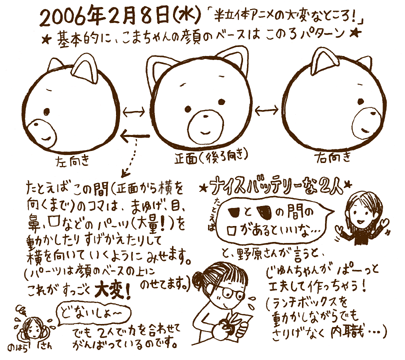 2006年2月8日(水)「半立体アニメの大変なところ!」
★基本的に、こまちゃんの顔のベースは この3パターン★
左向き
正面(後ろ向き)
右向き
たとえば この間(正面から横を
向くまで)のコマは、まゆげ、目、
鼻、口などの パーツ(大量!)を
動かしたり すげかえたりして
横を向いていくようにみせます。
(パーツは顔のベースの上に
のせてます。)
これが すっごく 大変!
どないしょ〜
のはらさん
でも 2人で力を合わせて
がんばっているのです。
★ナイスバッテリーな2人★
たとえば
と の間の
口があるといいな…
と、野原さんが言うと、
じゅんちゃんが ぱーっと
工夫して作っちゃう!
(ランチボックスを
動かしながらでも
さりげなく 内職…)